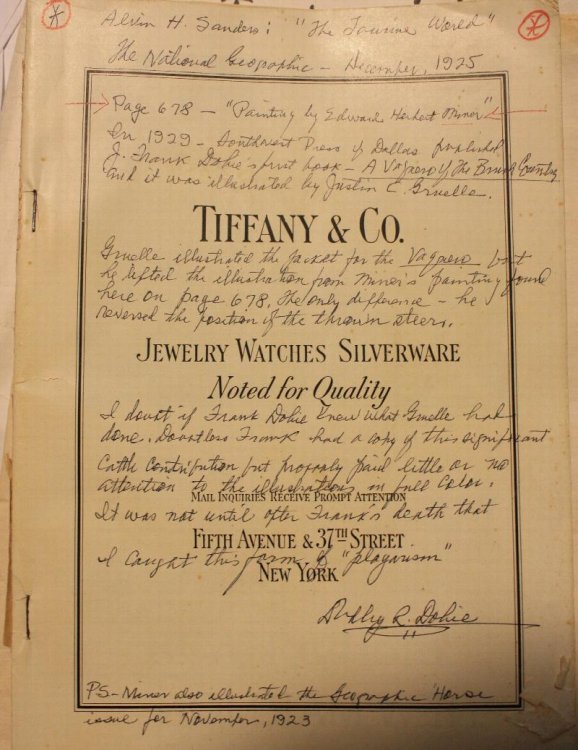 Alvin H. Sanders: "The Taurine World"
The National Geographic – December, 1925
Page 678 – "Painting by Edward Herbert Miner"
In 1929 – Southwest Press of Dallas published
J. Frank Dobie's first book – A Vaquero of The Brush Country
and it was illustrated by Justin C. Gruelle.
TIFFANY & CO.
Gruelle illustrated the jacket for the Vaquero but
he lifted the illustration from Miner's painting found
here on page 678. The only difference – he
reversed the position of the thrown steers.
JEWELRY WATCHES SILVERWARE
Noted for Quality
I doubt if Frank Dobie knew what Gruelle had
done. Doubtless Frank had a copy of this significant
Cattle Contribution but probably paid little or no
attention to the illustrations in full color.
MAIL INQUIRIES RECEIVE PROMPT ATTENTION
It was not until after Frank's death that
FIFTH AVENUE & 37TH STREET
I caught this form of "plagarism"
NEW YORK
Dudley R. Dobie
PS – Miner also illustrated the Geographic Horse
issue for November, 1923